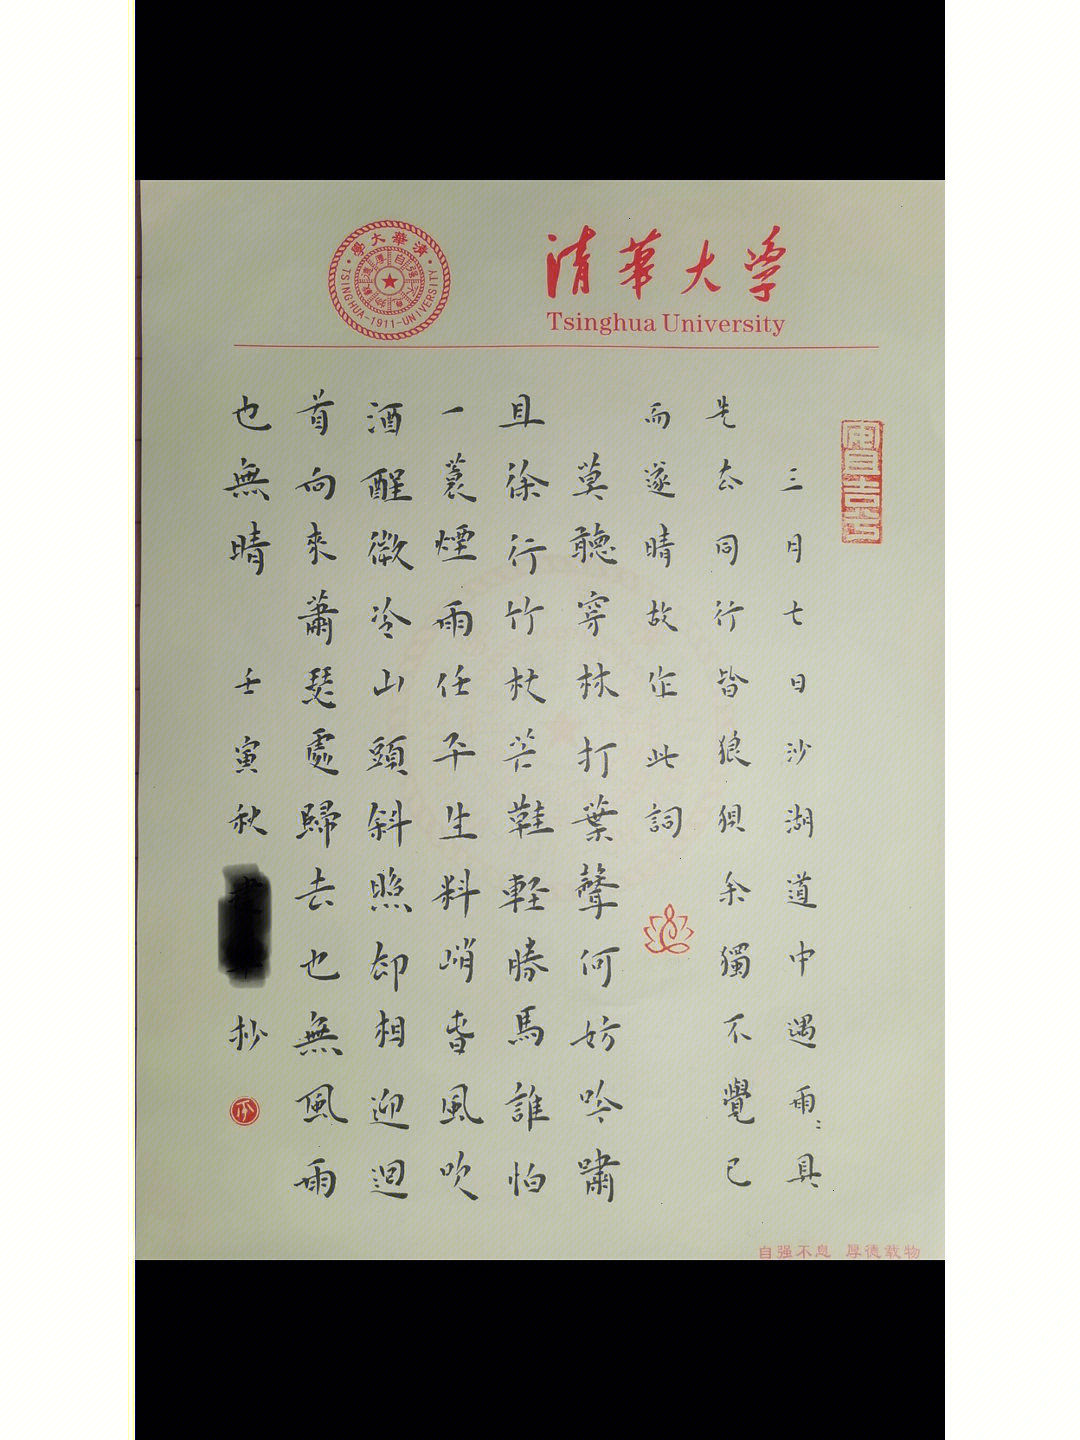 清華大學
TSINGHUA-1911-UNIVERSITY
清華大学
Tsinghua University
三月七日沙湖道中遇雨〻具
先去同行皆狼狽余獨不覺已
而遂晴故作此詞
莫聽穿林打葉聲何妨吟嘯
且徐行竹杖芒鞋軽勝馬誰怕
一蓑煙雨任平生料峭春風吹
酒醒微冷山頭斜照却相迎迴
首向來蕭瑟處歸去也無風雨
也無晴 壬寅秋 抄
自强不息 厚德载物